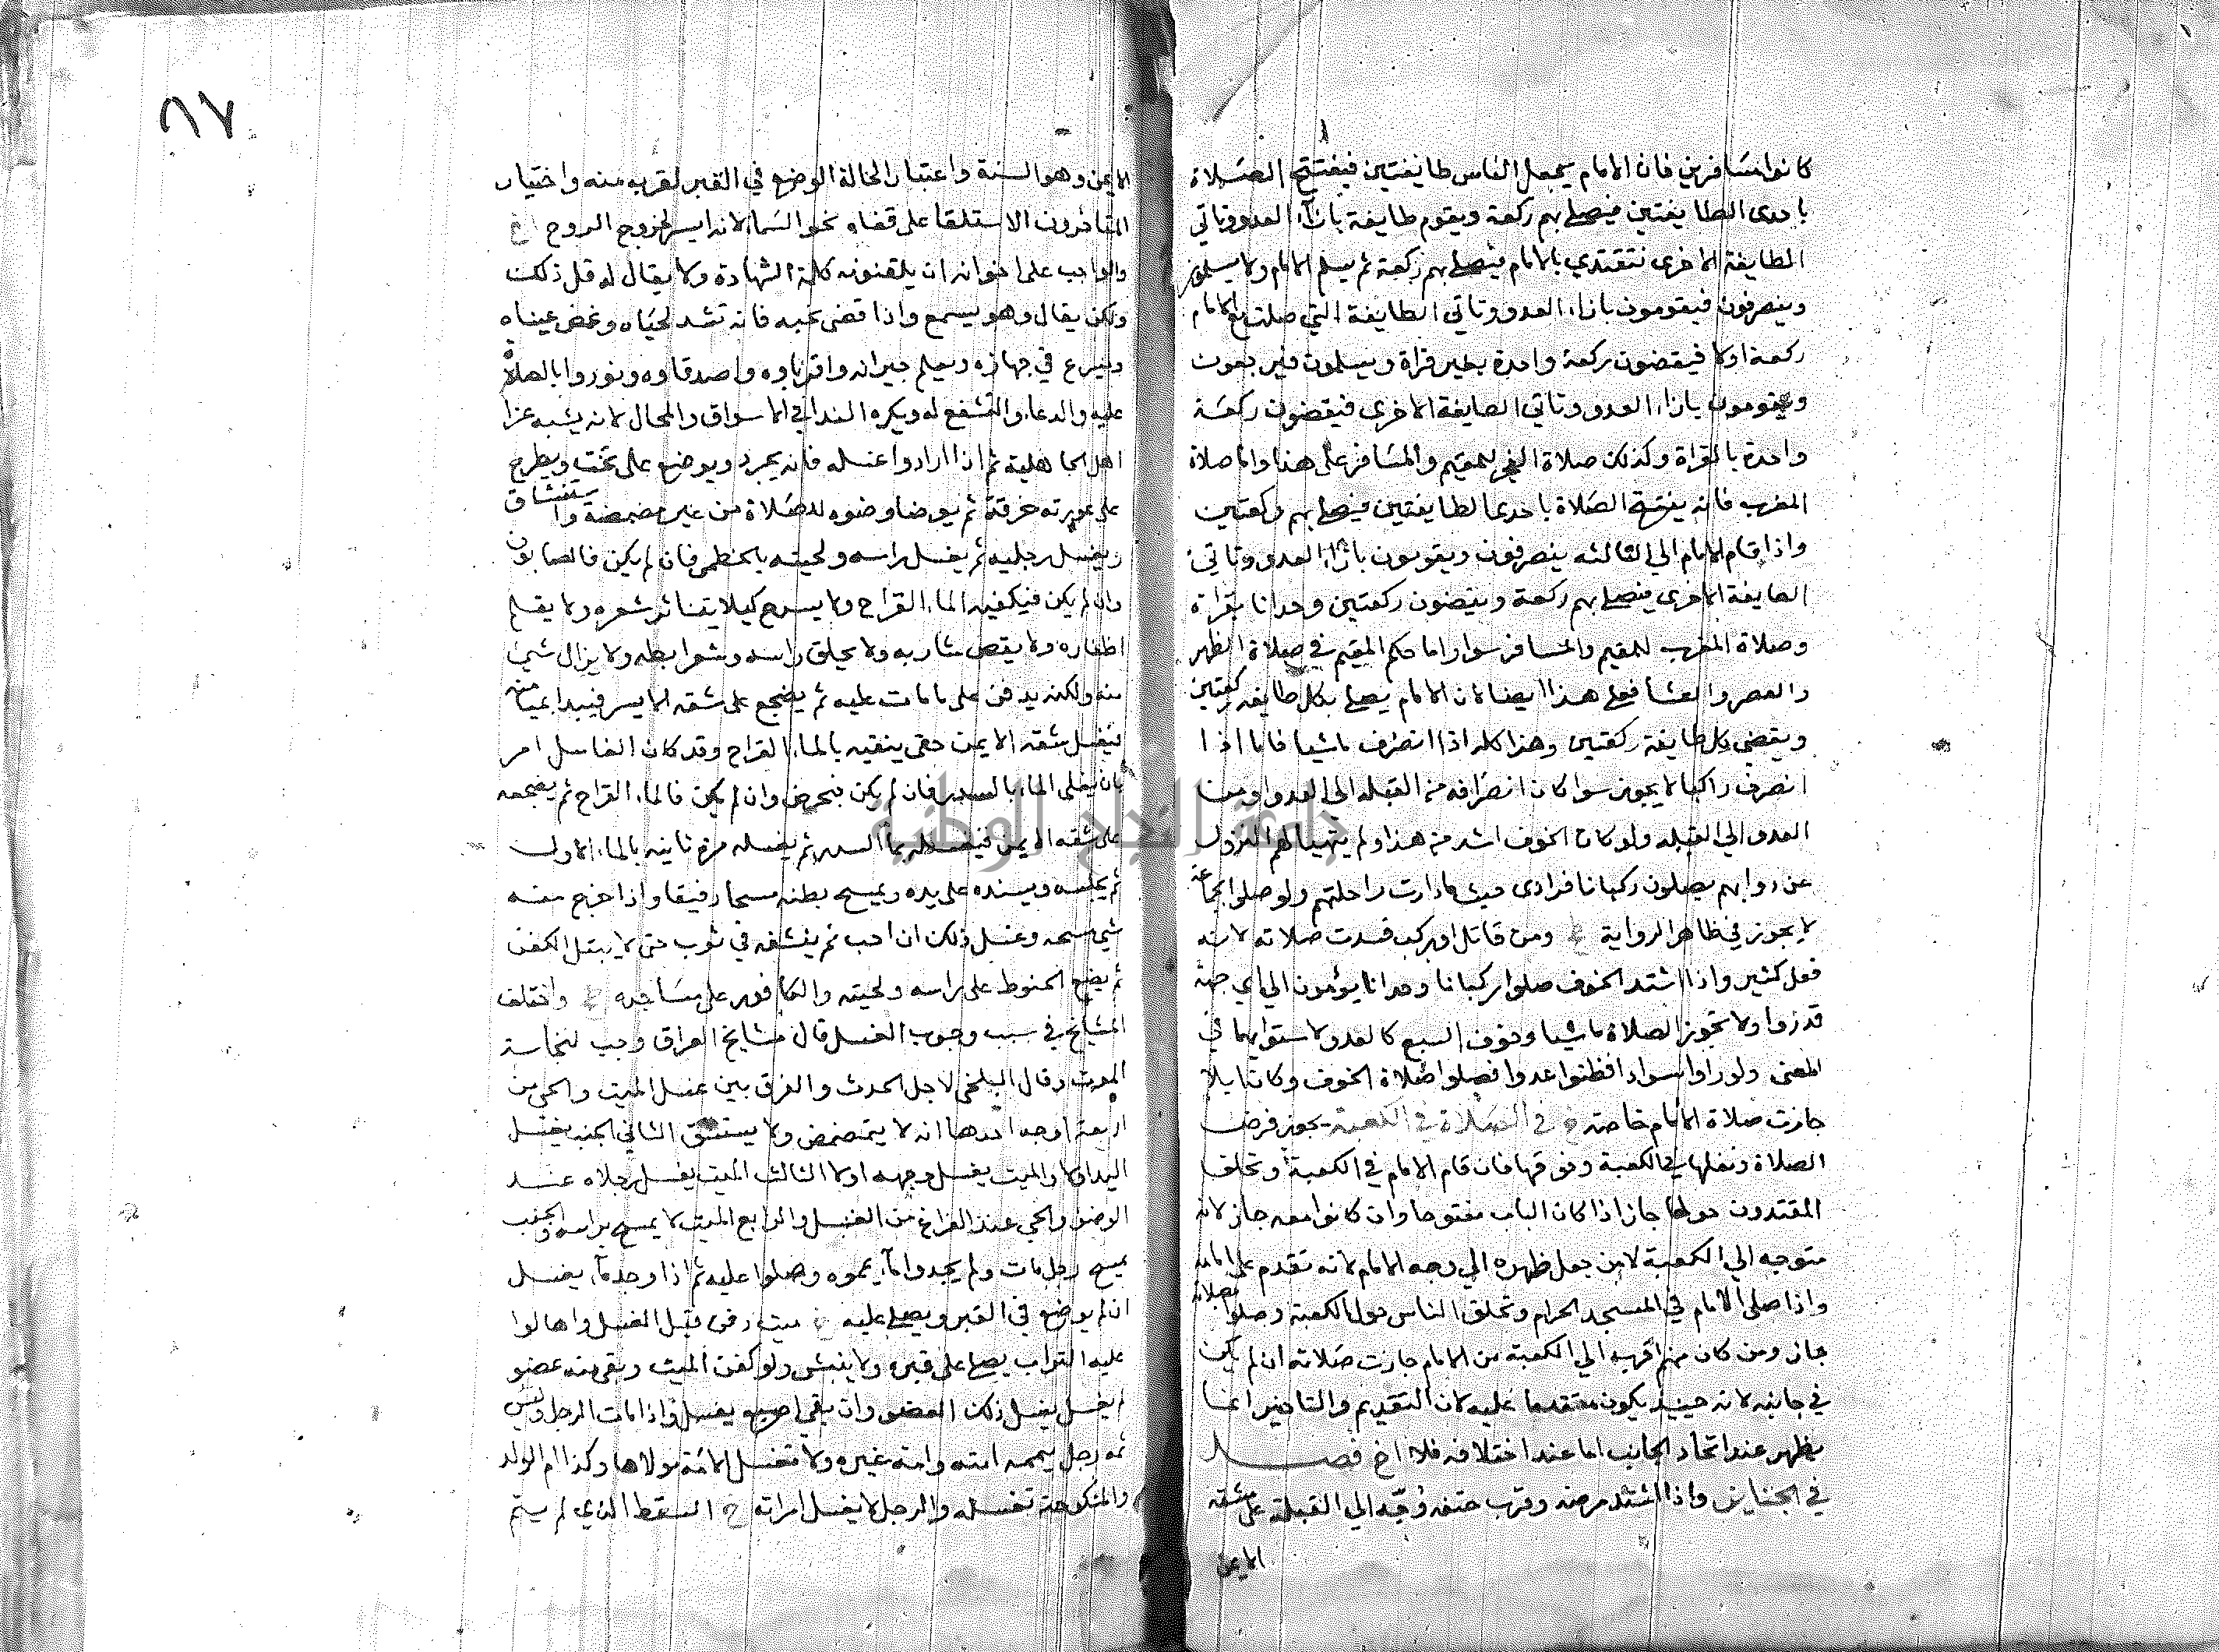 كانوا مسافرين فان الامام يجعل الناس طايفتين فيفتتح الصلاة
باحدى الطايفتين فيصلي بهم ركعة ويقوم طايفة بازآء العدو وتاتي
الطايفة الاخرى تقتدي بالامام فيصلي بهم ركعة ثم يسلم الامام ولا يسلمون
وينصرفون فيقومون بازاء العدو وتاتي الطايفة التي صلت مع الامام
ركعة اولا فيقضون ركعة واحدة بغير قراة ويسلمون فيرجعون
ويقومون بازاء العدو وتاتي الطايفة الاخرى فيقضون ركعة
واحدة بالقراة وكذلك صلاة الفجر للمقيم والمسافر على هذا واما صلاة
المغرب فانه يفتتح الصلاة باحدى الطايفتين فيصلي بهم ركعتين
واذا قام الامام الي الثالثه ينصرفون ويقومون بازاء العدو وتاتي
الطايفة الاخرى فيصلي بهم ركعة ويقضون ركعتين وحدانا بقراة
وصلاة المغرب للمقيم والمسافر سوا واما حكم المقيم في صلاة الظهر
والعصر والعشا فعلى هذا ايضا لان الامام يصلي بكل طايفه ركعتين
ويقضي كل طايفة ركعتين وهذا كله اذا انصرف ماشيا فاما اذا
انصرف راكبا لا يجوز سوا كان انصرافه من القبله الى العدو او من
العدو الي القبله ولو كان الخوف اشد من هذا ولم يتهيا لهم النزول
عن دوابهم يصلون ركبانا فرادى حيث ما دارت راحلتهم ولو صلوا بجماعة
لا يجوز في ظاهر الرواية ومن قاتل او ركب فسدت صلاته لانه
فعل كثير واذا اشتد الخوف صلوا ركبانا وحدانا يومون الي اي جهة
قدروا ولا تجوز الصلاة ماشيا وخوف السبع كالعدو لاستوايهما في
المعنى ولو راوا سوادا فظنوا عدوا فصلوا صلاة الخوف وكان ابلا
جازت صلاة الامام خاصة في الصلاة في الكعبة يجوز فرض
الصلاة ونفلها في الكعبة وفوقها فان قام الامام في الكعبة وتحلق
المقتدون حولها جاز اذا كان الباب مفتوحا وان كانوا معه جاز لانه
متوجه الي الكعبة لا من جعل ظهره الي وجه الامام لانه تقدم على امامه
واذا صلى الامام في المسجد الحرام وتحلق الناس حول الكعبة وصلوا بصلاته
جاز ومن كان منهم اقرب الي الكعبة من الامام جازت صلاته ان لم يكن
في جانبه لانه حينيذ يكون متقدما عليه لان التقديم والتاخير انما
يظهر عند اتحاد الجانب اما عند اختلافه فلا فصل
في الجنايز واذا اشتد مرضه وقرب حتفه وجه الي القبلة على شقه
الايمن
٦٧
الايمن وهو السنة واعتبارا لحالة الوضع في القبر لقربه منه واختيار
المتاخرون الاستلقا على قفاه نحو السما لانه ايسر لخروج الروح
والواجب على اخوانه ان يلقنونه كلمة الشهادة ولا يقال له قل ذلك
ولكن يقال وهو يسمع واذا قضى نحبه فانه تشد لحياه وغمض عيناه
ويسرع في جهازه ويعلم جيرانه واقرباوه واصدقاوه
عليه والدعاء والتشفع له ويكره الندا في الاسواق والمحال لانه يشبه عزا
اهل الجاهلية ثم اذا ارادوا غسله فانه يجرد ويوضع على تخت ويطرح
على عورته خرقة ثم يوضا وضوه للصلاة من غير مضمضة واستنشاق
ويغسل رجليه ثم يغسل راسه ولحيته بالخطمى فان لم يكن فالصابون
وان لم يكن فيكفيه الماء القراح ولا يسرح كيلا يتناثر شعره ولا يقلم
اظفاره ولا يقص شاربه ولا يحلق راسه وشعر ابطه ولا يزال شي
منه ولكنه يدفن على ما مات عليه ثم يضجع على شقه الايسر فيبدا بميامنه
فيغسل شقه الايمن حتى ينقيه بالماء القراح وقد كان الغاسل امر
بان يغلى الماء بالسدر فان لم يكن فبحرض وان لم يكن فالماء القراح ثم يضجعه
على شقه الايمن فيغسله بماء السدر ثم يغسله مرة ثانيه بالماء الاول
ثم يجلسه ويسنده على يده ويمسح بطنه مسحا رفيقا واذا خرج منه
شي مسحه وغسل ذلك ان احب ثم ينشفه في ثوب حتى لا يبتل الكفن
ثم يضع الحنوط على راسه ولحيته والكافور على مساجده واختلف
المشايخ في سبب وجوب الغسل قال مشايخ العراق وجب لنجاسة
الموت وقال البلخي لاجل الحدث والفرق بين غسل الميت والحي من
اربعة اوجه احدها انه لا يتمضمض ولا يستنشق الثاني الجنب يغسل
اليد اولا والميت يغسل وجهه اولا الثالث الميت يغسل رجلاه عند
الوضو والحي عند الفراغ من الغسل والرابع الميت لا يمسح براسه والجنب
يمسح رجل مات ولم يجدوا ماء يمموه وصلوا عليه ثم اذا وجد ماء يغسل
ان لم يوضع في القبر ويصلي عليه ميت دفن قبل الغسل واهالوا
عليه التراب يصلى على قبره ولا ينبش ولو كفن الميت وبقي منه عضو
لم يغسل يغسل ذلك العضو وان بقي اصبع يغسل واذا مات الرجل وليس
ثمه رجل ييممه امته وامة غيره ولا تغسل الامة مولاها وكذا ام الولد
والمنكوحة تغسله والرجل لا يغسل امراته السقط الذي لم يتم
جامعة النجاح الوطنية